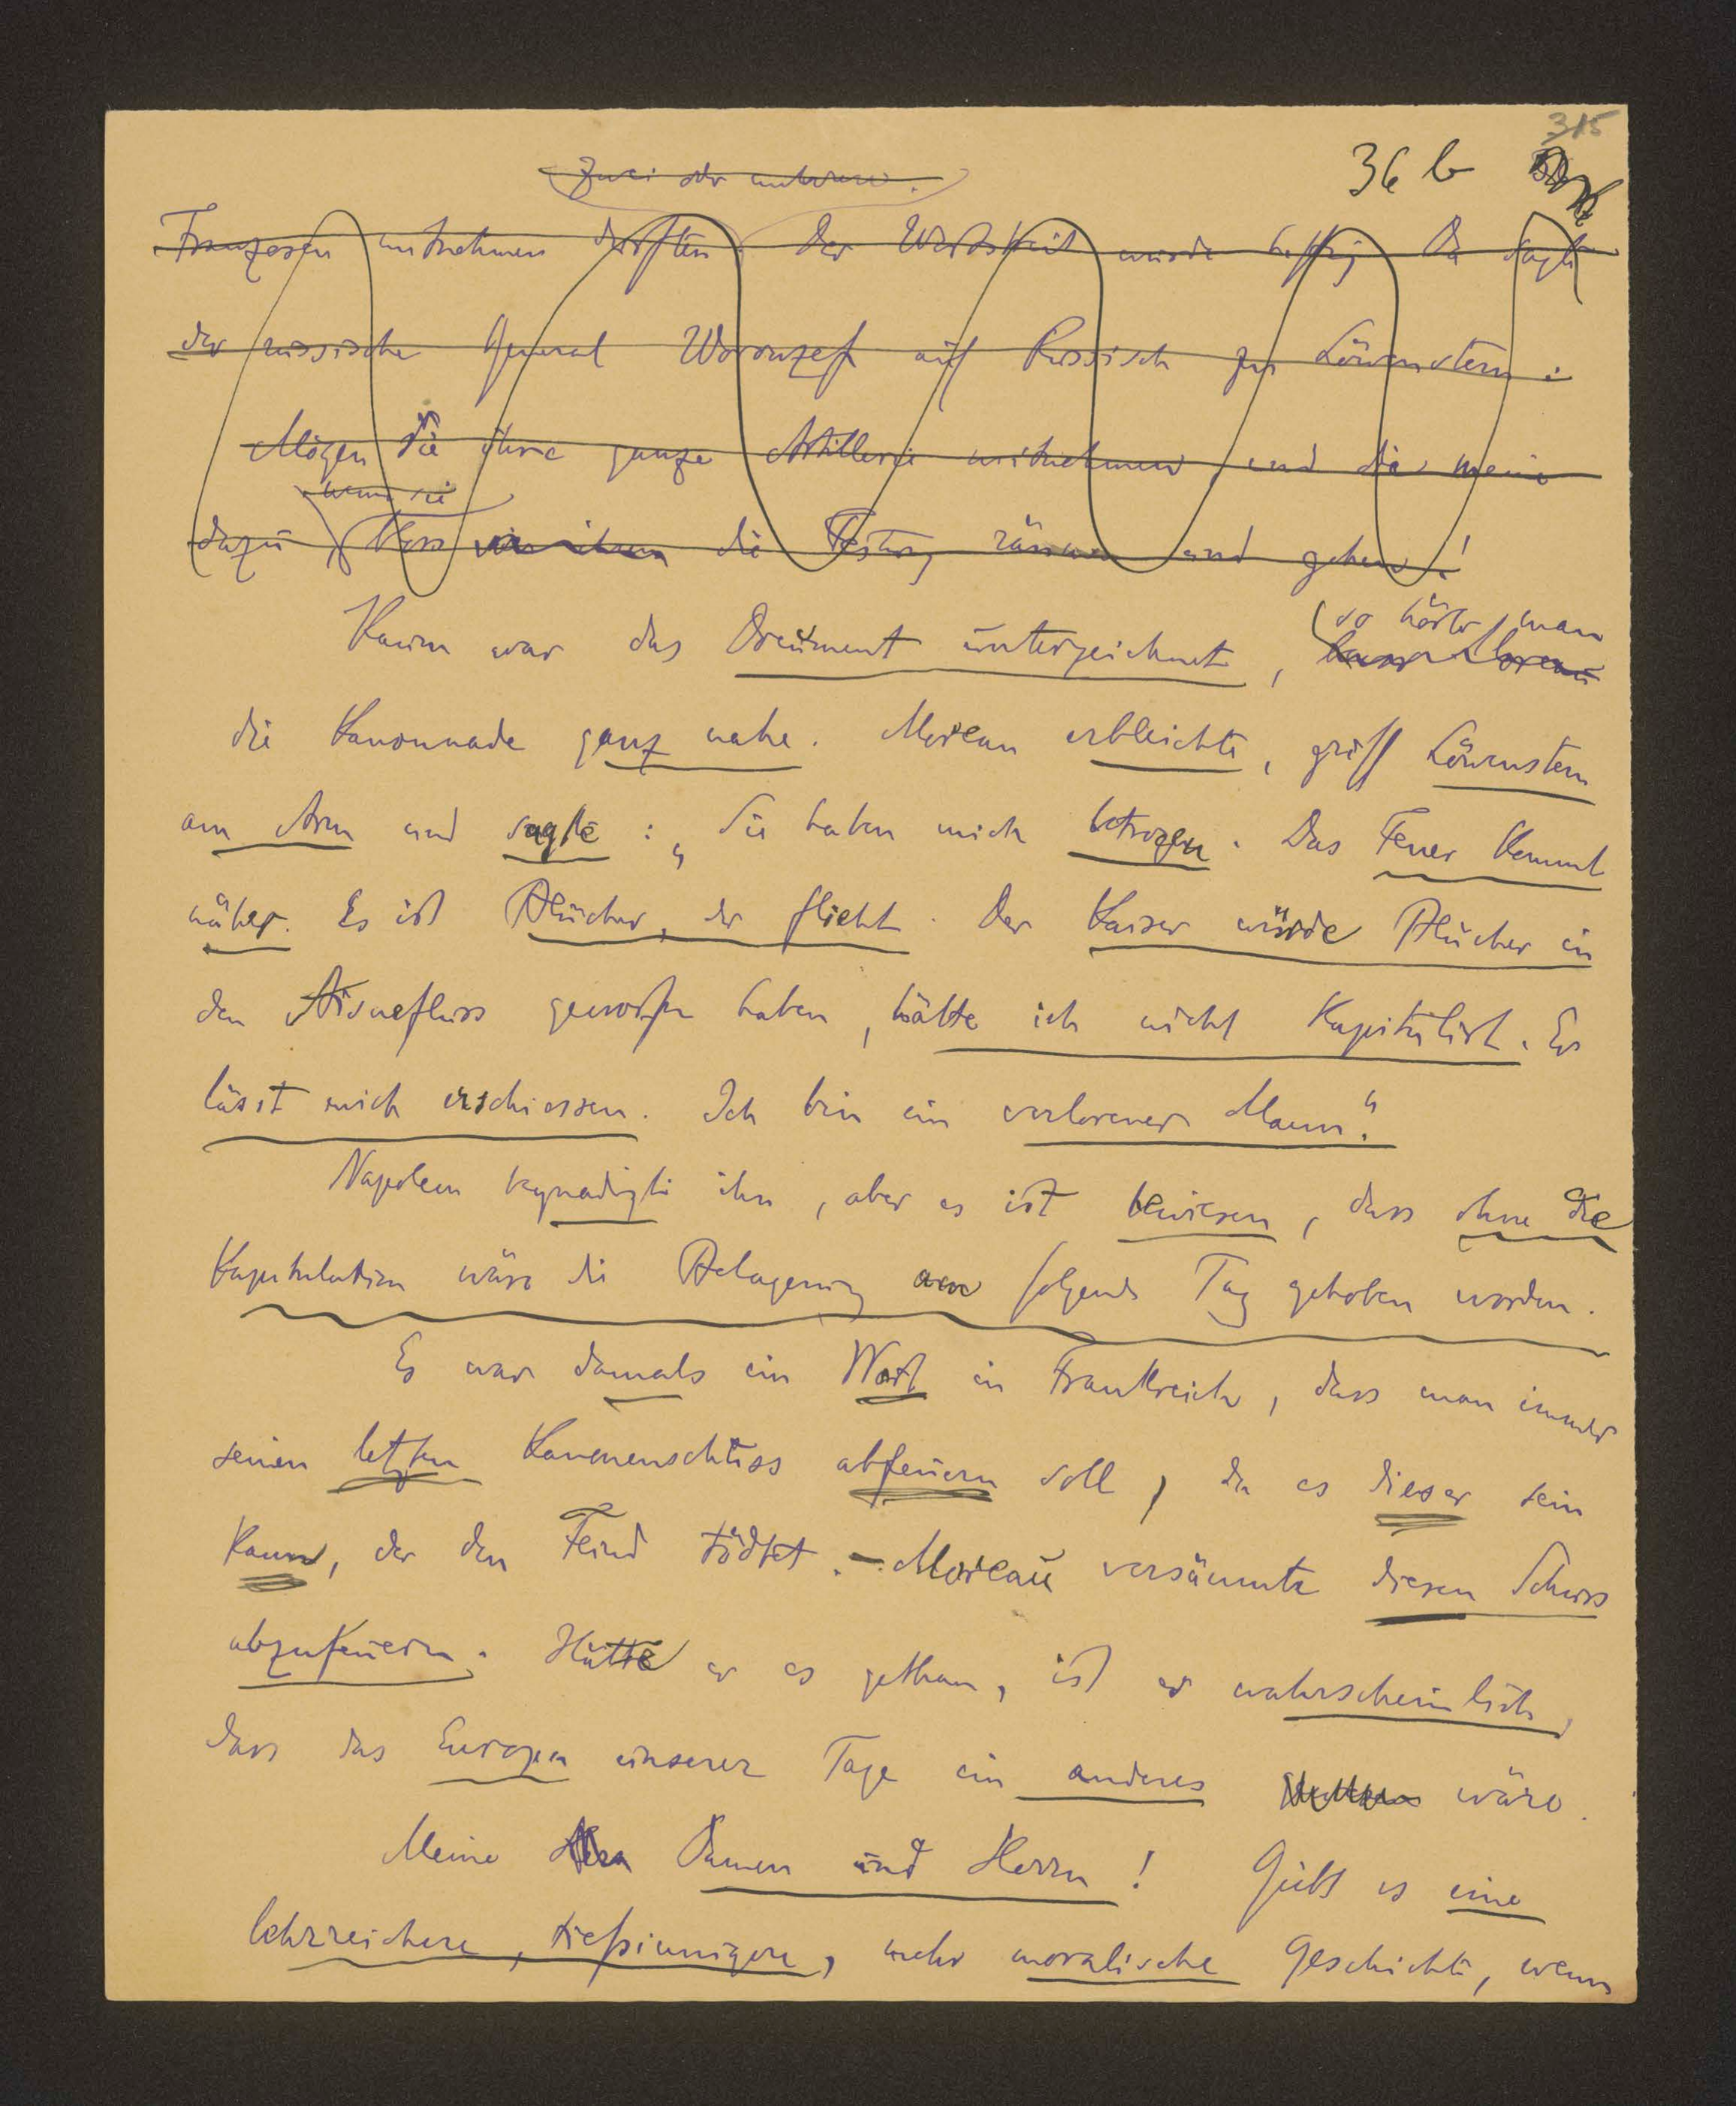 315
36 b
zwei oder mehrere.
Franzosen mitnehmen dürften. Der Wortstreit wurde heftig. Da sagte
der russische General Woronzef auf Russisch zu Löwenstern:
Mögen sie ihre ganze Artillerie mitnehmen, und die meine
wenn sie
dazu, die Festung räumen und gehen!
so hörte man
Kaum war das Document unterzeichnet,
die Kanonnade ganz nahe. Moreau erbleichte, griff Löwenstern
am Arm und sagte: „Sie haben mich betrogen. Das Feuer kommt
näher. Es ist Blücher, der flieht. Der Kaiser würde Blücher in
den Aisnefluss geworfen haben, hätte ich nicht kapitulirt. Er
lässt mich erschiessen. Ich bin ein verlorener Mann."
Napoleon begnadigte ihn, aber es ist bewiesen, dass ohne die
Kapitulation wäre die Belagerung am folgende Tag gehoben worden.
Es war damals ein Wort in Frankreich, dass man immer
seinen letzten Kanonenschuss abfeuern soll, da es dieser sein
kann, der den Feind tödtet. - Moreau versäumte diesen Schuss
abzufeuern. Hätte er es gethan, ist es wahrscheinlich,
dass das Europa unserer Tage ein anderes wäre.
Meine Damen und Herrn! Gibt es eine
lehrreichere, tiefsinnigere, mehr moralische Geschichte, wenn